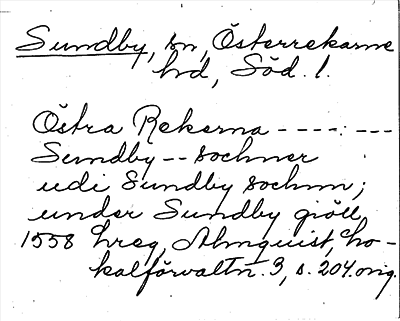 Sundby, sn, Österrekarne
hd, Söd. l.
Östra Rekerna - - - - : - - -
Sundby - - sochner
udi Sundby sochnn;
under Sundby giöll,
1558 hreg, Almquist, Lo-
kalförvaltn. 3, s. 204. orig.